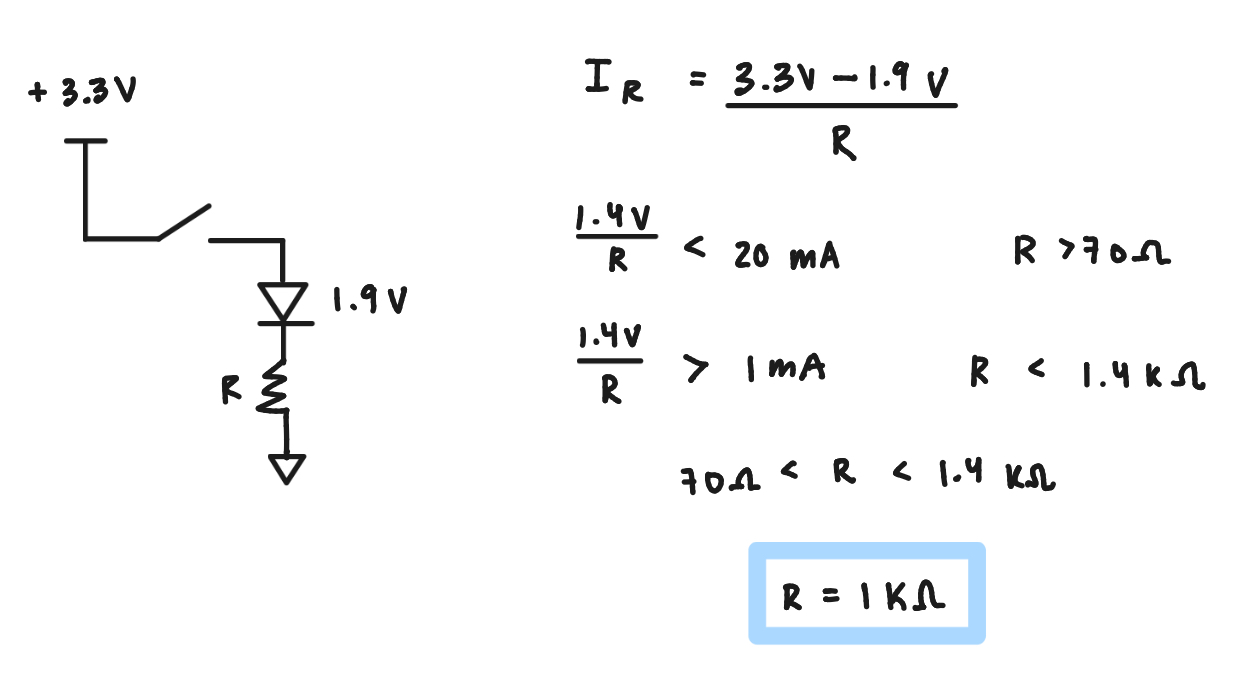 + 3.3V
1.9V
R
I_R = (3.3V - 1.9V) / R
1.4V / R < 20 mA    R > 70Ω
1.4V / R > 1 mA    R < 1.4 KΩ
70Ω < R < 1.4 KΩ
R = 1 KΩ